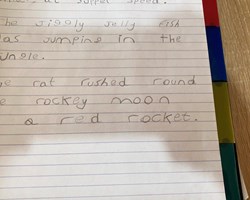 at super speed.
he jiggly jelly fish
as jumping in the
ungle.
e rat rushed round
e rockey moon
a red rocket.